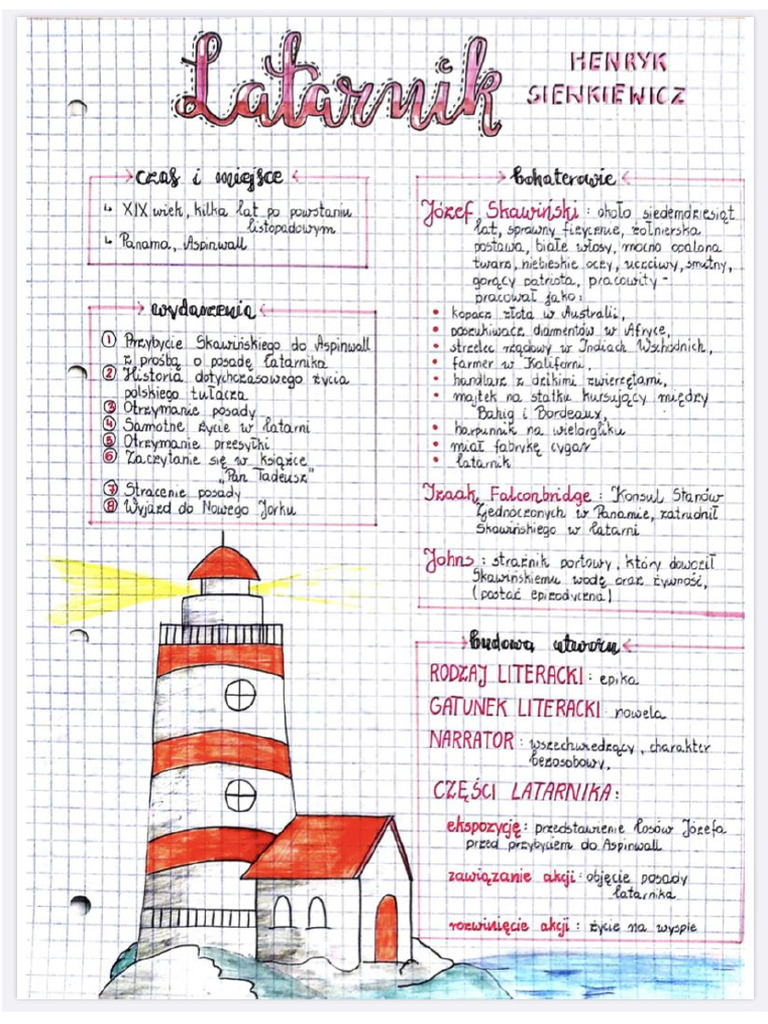 Latarnik
HENRYK
SIENKIEWICZ
czas i miejsce
↳ XIX wiek, kilka lat po powstaniu
listopadowym
↳ Panama, Aspinwall
wydarzenia
1 Przybycie Skawińskiego do Aspinwall
z prośbą o posadę latarnika
2 Historia dotychczasowego życia
polskiego tułacza
3 Otrzymanie posady
4 Samotne życie w latarni
5 Otrzymanie przesyłki
6 Zaczytanie się w książce
„Pan Tadeusz"
7 Stracenie posady
8 Wyjazd do Nowego Jorku
bohaterowie
Józef Skawiński : około siedemdziesiąt
lat, sprawny fizycznie, żołnierska
postawa, białe włosy, mocno opalona
twarz, niebieskie oczy, uczciwy, smutny,
gorący patriota, pracowity -
pracował jako:
• kopacz złota w Australii,
• poszukiwacz diamentów w Afryce,
• strzelec rządowy w Indiach Wschodnich,
• farmer w Kaliforni,
• handlarz z dzikimi zwierzętami,
• majtek na statku kursujący między
Bahią i Bordeaux,
• harpunnik na wielorybliku
• miał fabrykę cygar
• latarnik
Izaak Falconbridge : Konsul Stanów
Zjednoczonych w Panamie, zatrudnił
Skawińskiego w latarni
Johns : strażnik portowy, który dowoził
Skawińskiemu wodę oraz żywność,
(postać epizodyczna)
budowa utworu
RODZAJ LITERACKI : epika
GATUNEK LITERACKI nowela
NARRATOR : wszechwiedzący, charakter
bezosobowy,
CZĘŚCI LATARNIKA :
ekspozycję : przedstawienie losów Józefa
przed przybyciem do Aspinwall
zawiązanie akcji : objęcie posady
latarnika
rozwinięcie akcji : życie na wyspie